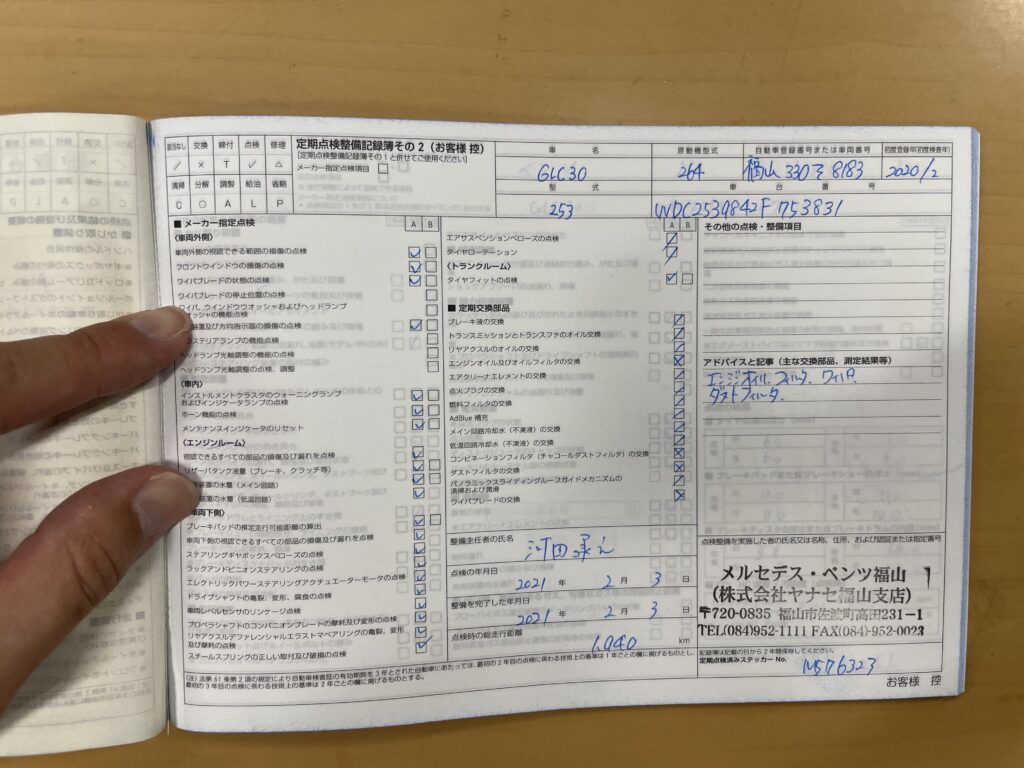 該当なし 交換 締付 点検 修理
／ × T ✓ △
清掃 分解 調製 給油 省略
C ○ A L P
定期点検整備記録簿その2（お客様 控）
[定期点検整備記録簿その1と併せてご使用ください]
メーカー指定点検項目
車 名 原動機型式 自動車登録番号または車両番号 初度登録年(初度検査年)
GLC30 264 福山 330 8183 2020/2
型 式 車 台 番 号
253 WDC2539842F753831
■ メーカー指定点検 A B
〈車両外側〉
車両外側の視認できる範囲の損傷の点検
フロントウインドウの損傷の点検
ワイパブレードの状態の点検
ワイパブレードの停止位置の点検
ワイパ、ウインドウウオッシャおよびヘッドランプ
オッシャの機能点検
装置及び方向指示器の損傷の点検
ステリアランプの機能点検
ヘッドランプ光軸調整の機能点検
ヘッドランプ光軸調整の点検、調整
〈車内〉
インストルメントクラスタのウォーニングランプ
およびインジケータランプの点検
ホーン機能の点検
メンテナンスインジケータのリセット
〈エンジンルーム〉
視認できるすべての部品の損傷及び漏れを点検
リザーバタンク液量（ブレーキ、クラッチ等）
装置の水量（メイン回路）
装置の水量（低温回路）
車両下側〉
ブレーキパッドの推定走行可能距離の算出
車両下側の視認できるすべての部品の損傷及び漏れを点検
ステアリングギヤボックスベローズの点検
ラックアンドピニオンステアリングの点検
エレクトリックパワーステアリングアクチュエーターモータの点検
ドライブシャフトの亀裂、変形、腐食の点検
車両レベルセンサのリンケージ点検
プロペラシャフトのコンパニオンプレートの摩耗及び変形の点検
リヤアクスルデファレンシャルエラストマベアリングの亀裂、変形
及び摩耗の点検
スチールスプリングの正しい取付及び破損の点検
A B
エアサスペンションベローズの点検
タイヤローテーション
〈トランクルーム〉
タイヤフィットの点検
■ 定期交換部品
ブレーキ液の交換
トランスミッションとトランスファのオイル交換
リヤアクスルのオイルの交換
エンジンオイル及びオイルフィルタの交換
エアクリーナエレメントの交換
点火プラグの交換
燃料フィルタの交換
AdBlue 補充
メイン回路冷却水（不凍液）の交換
低温回路冷却水（不凍液）の交換
コンビネーションフィルタ（チャコールダストフィルタ）の交換
ダストフィルタの交換
パノラミックスライディングルーフガイドメカニズムの
清掃および潤滑
ワイパブレードの交換
整備主任者の氏名
点検の年月日
2021 年 2 月 3 日
整備を完了した年月日
2021 年 2 月 3 日
点検時の総走行距離
1,040 km
その他の点検・整備項目
アドバイスと記事（主な交換部品、測定結果等）
エンジンオイル、フィルタ、ワイパ、
ダストフィルタ
点検整備を実施した者の氏名又は名称、住所、および認証または指定番号
メルセデス・ベンツ福山
（株式会社ヤナセ福山支店）
〒720-0835 福山市佐波町高田231－1
TEL(084)952-1111 FAX(084)-952-0023
記録簿は記載の日から2年間保存してください。
定期点検済みステッカー No. M576323
(注) 法第61条第2項の規定により自動車検査証の有効期間を3年とされた自動車にあたっては、最初の2年目の点検に係わる技術上の基準は1年ごとの欄に掲げるものとし、
最初の3年目の点検に係わる技術上の基準は2年ごとの欄に掲げるものとする。
お客様 控